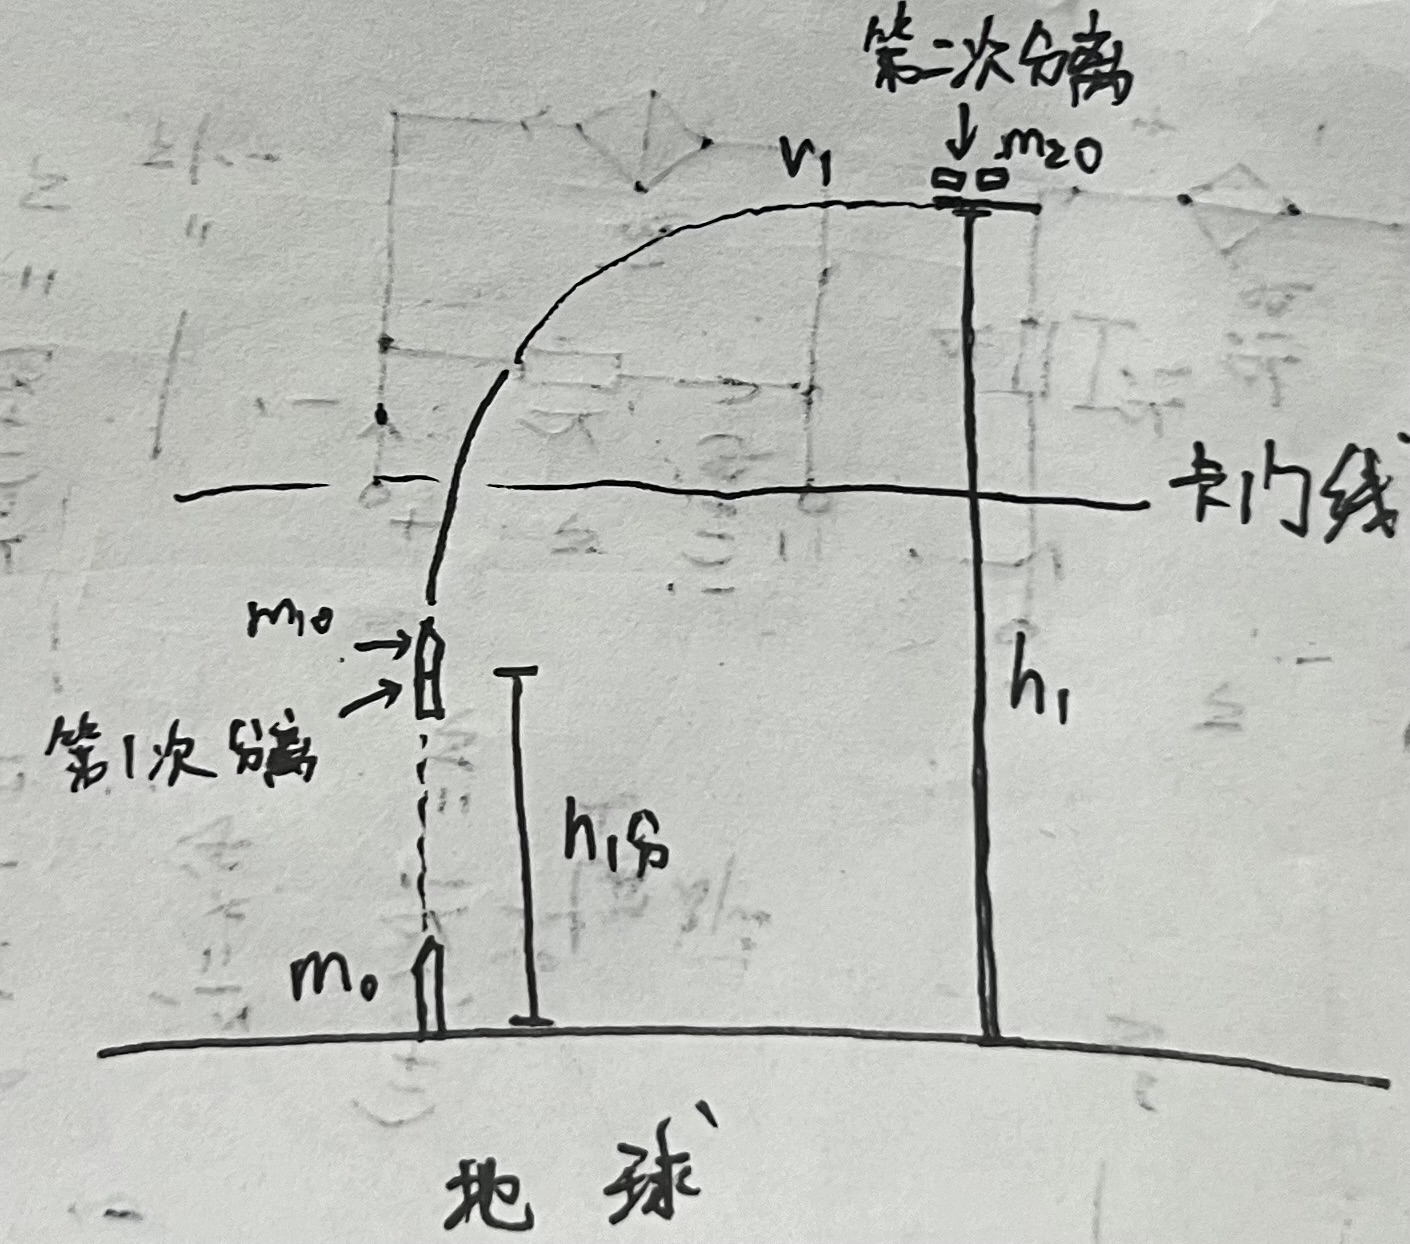 第二次分离
m₂₀
v₁
卡门线
m₁₀
第1次分离
h₁
h₁分
m₀
地球